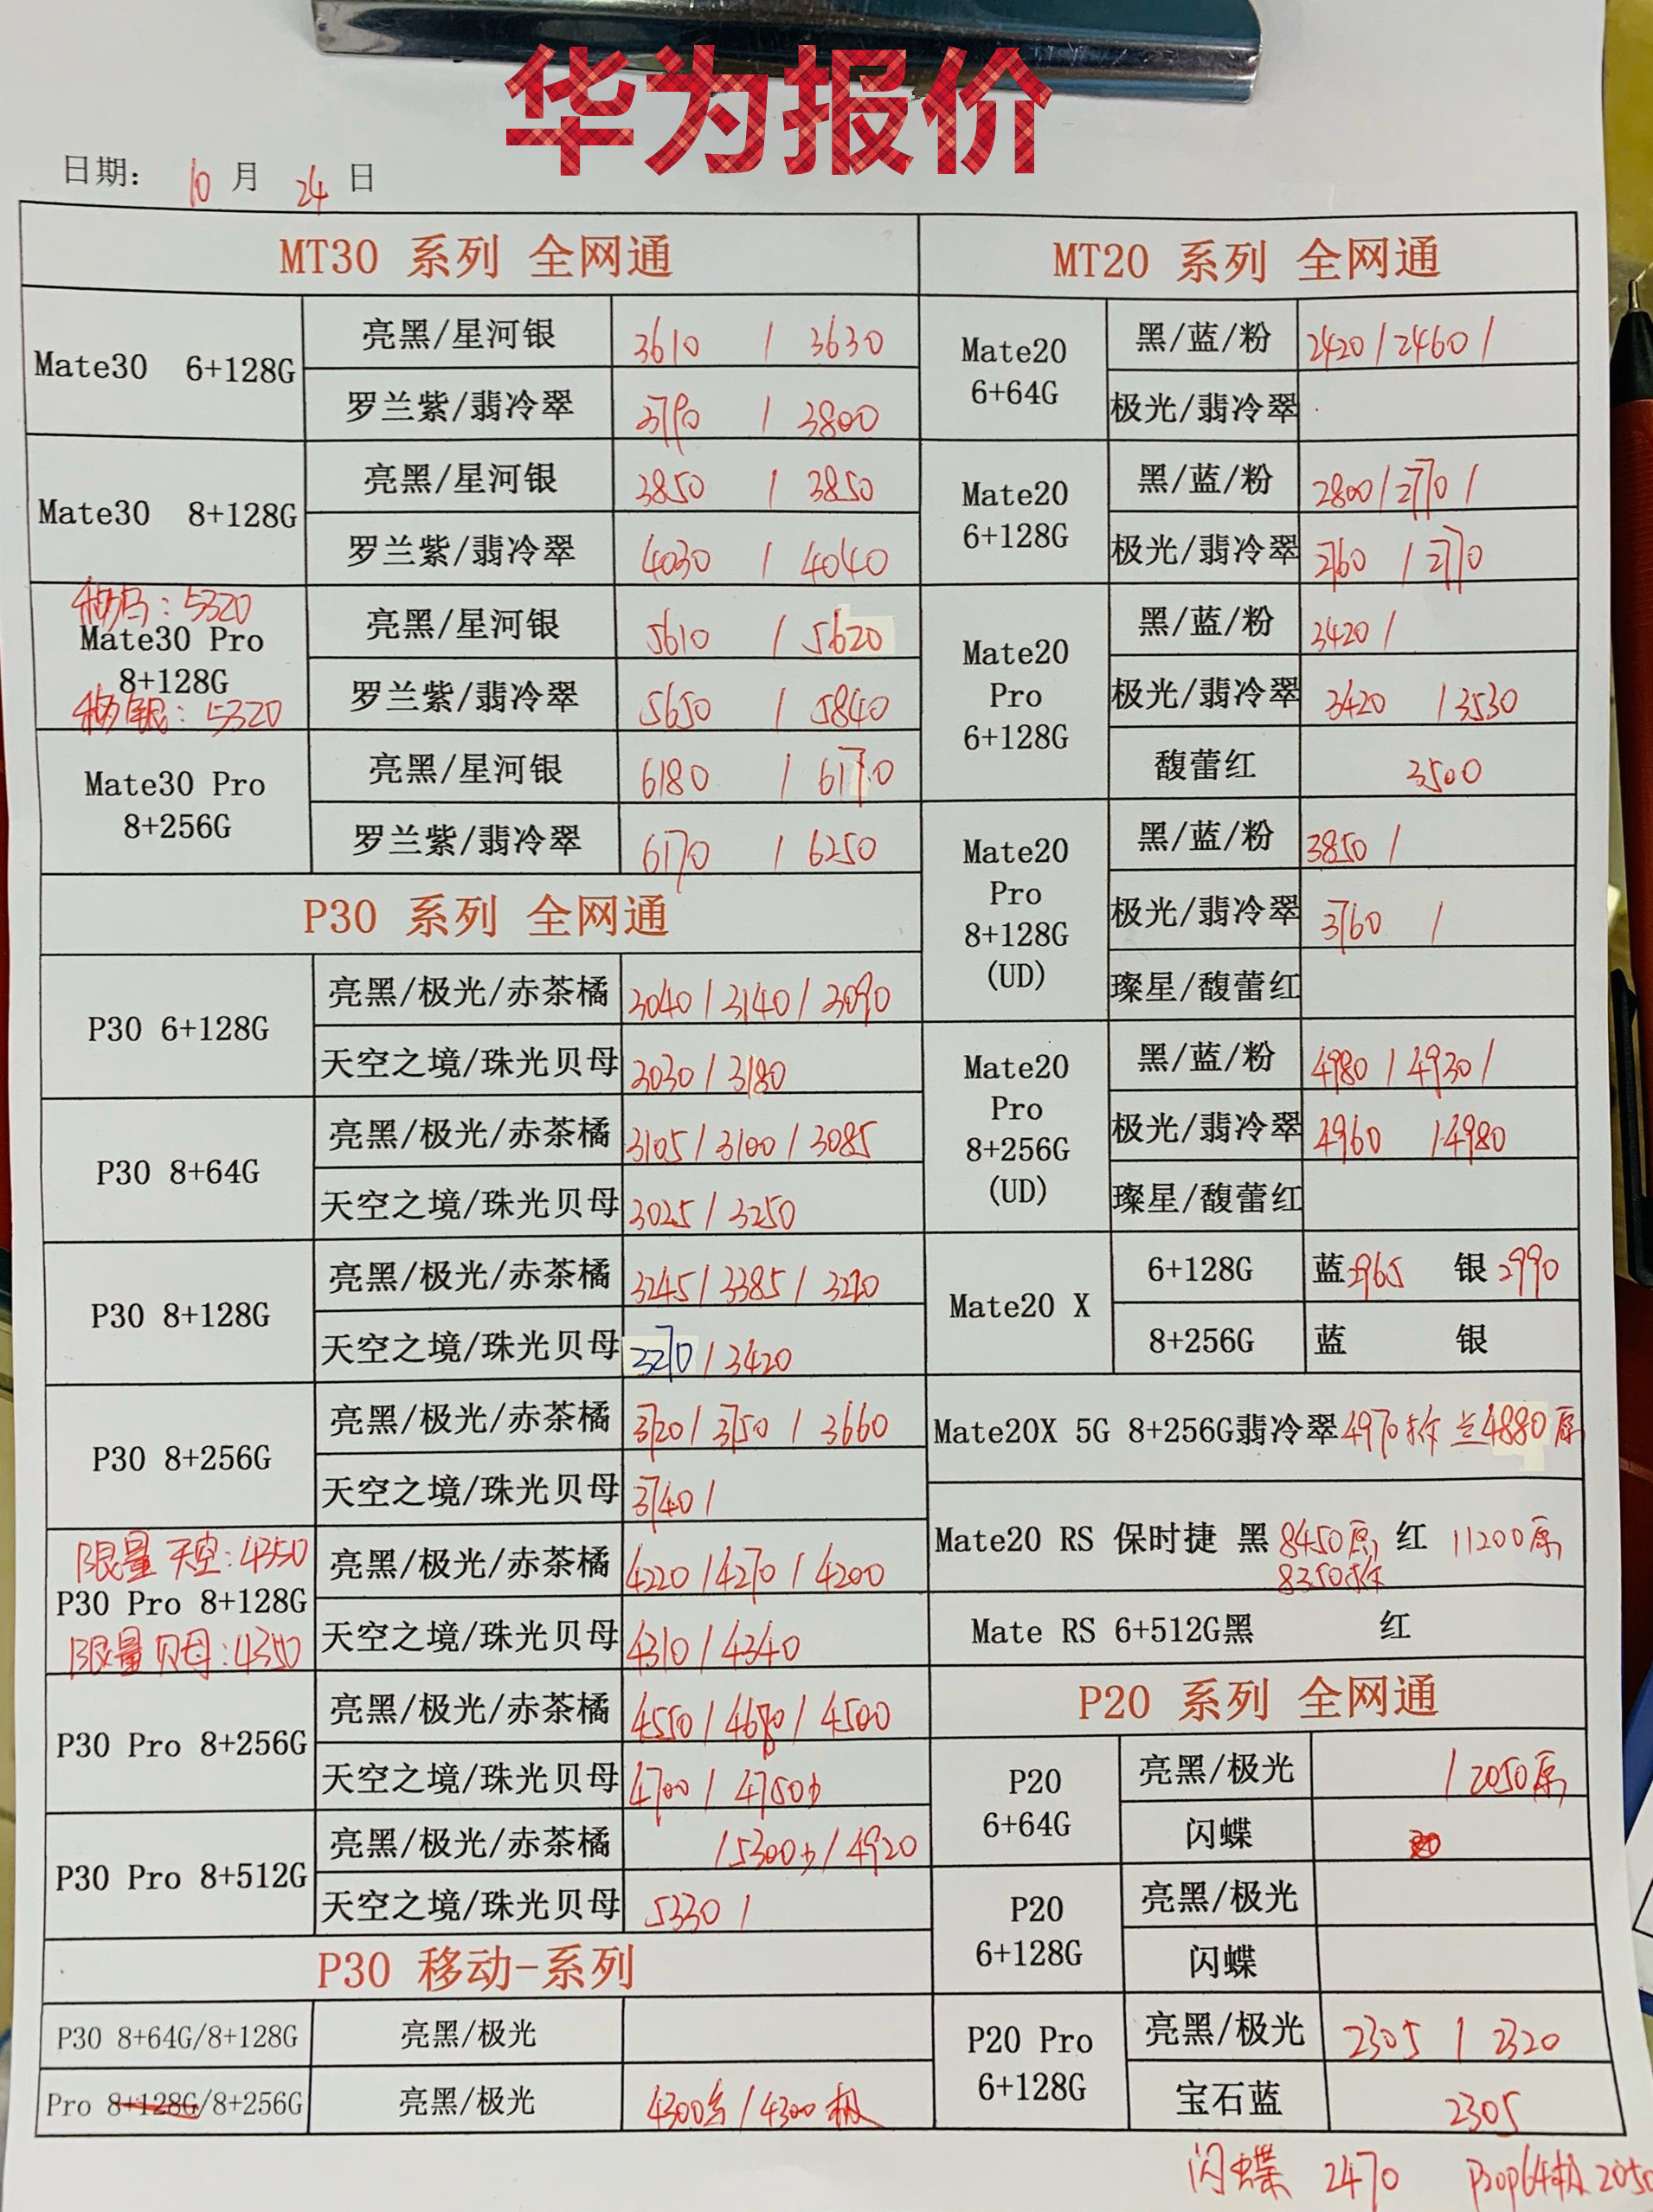 华为报价
日期: 10 月 24 日
MT30 系列 全网通
Mate30 6+128G
亮黑/星河银 3610 / 3630
罗兰紫/翡冷翠 3790 / 3800
Mate30 8+128G
亮黑/星河银 3850 / 3850
罗兰紫/翡冷翠 4030 / 4040
5320
Mate30 Pro
8+128G
5320
亮黑/星河银 5610 / 5620
罗兰紫/翡冷翠 5650 / 5840
Mate30 Pro
8+256G
亮黑/星河银 6180 / 6170
罗兰紫/翡冷翠 6170 / 6250
P30 系列 全网通
P30 6+128G
亮黑/极光/赤茶橘 3040 / 3140 / 3090
天空之境/珠光贝母 3030 / 3180
P30 8+64G
亮黑/极光/赤茶橘 3105 / 3100 / 3085
天空之境/珠光贝母 3025 / 3250
P30 8+128G
亮黑/极光/赤茶橘 3245 / 3385 /
天空之境/珠光贝母 3270 / 3420
P30 8+256G
亮黑/极光/赤茶橘 3720 / 3750 / 3660
天空之境/珠光贝母 3740 /
限量 天空: 4350
P30 Pro 8+128G
限量 贝母: 4350
亮黑/极光/赤茶橘 4220 / 4270 / 4200
天空之境/珠光贝母 4310 / 4340
P30 Pro 8+256G
亮黑/极光/赤茶橘 4550 / / 4500
天空之境/珠光贝母 4700 / 4750
P30 Pro 8+512G
亮黑/极光/赤茶橘 / 5300 / 4920
天空之境/珠光贝母 5330 /
P30 移动-系列
P30 8+64G/8+128G 亮黑/极光
Pro 8+128G/8+256G 亮黑/极光 4300 / 4300 极
MT20 系列 全网通
Mate20
6+64G
黑/蓝/粉 2420 / 2460 /
极光/翡冷翠
Mate20
6+128G
黑/蓝/粉 2800 / 2770 /
极光/翡冷翠 2760 / 2770
Mate20
Pro
6+128G
黑/蓝/粉 3420 /
极光/翡冷翠 3420 / 3530
馥蕾红 3500
Mate20
Pro
8+128G
(UD)
黑/蓝/粉 3850 /
极光/翡冷翠 3760 /
璨星/馥蕾红
Mate20
Pro
8+256G
(UD)
黑/蓝/粉 4980 / 4930 /
极光/翡冷翠 4960 / 4980
璨星/馥蕾红
Mate20 X
6+128G 蓝 2965 银 2990
8+256G 蓝 银
Mate20X 5G 8+256G翡冷翠 4970 拆 兰 4880 原
Mate20 RS 保时捷 黑 8450原 红 11200原
8350拆
Mate RS 6+512G黑 红
P20 系列 全网通
P20
6+64G
亮黑/极光 / 2050原
闪蝶
P20
6+128G
亮黑/极光
闪蝶
P20 Pro
6+128G
亮黑/极光 2305 / 2320
宝石蓝 2305
闪蝶 2470 2050